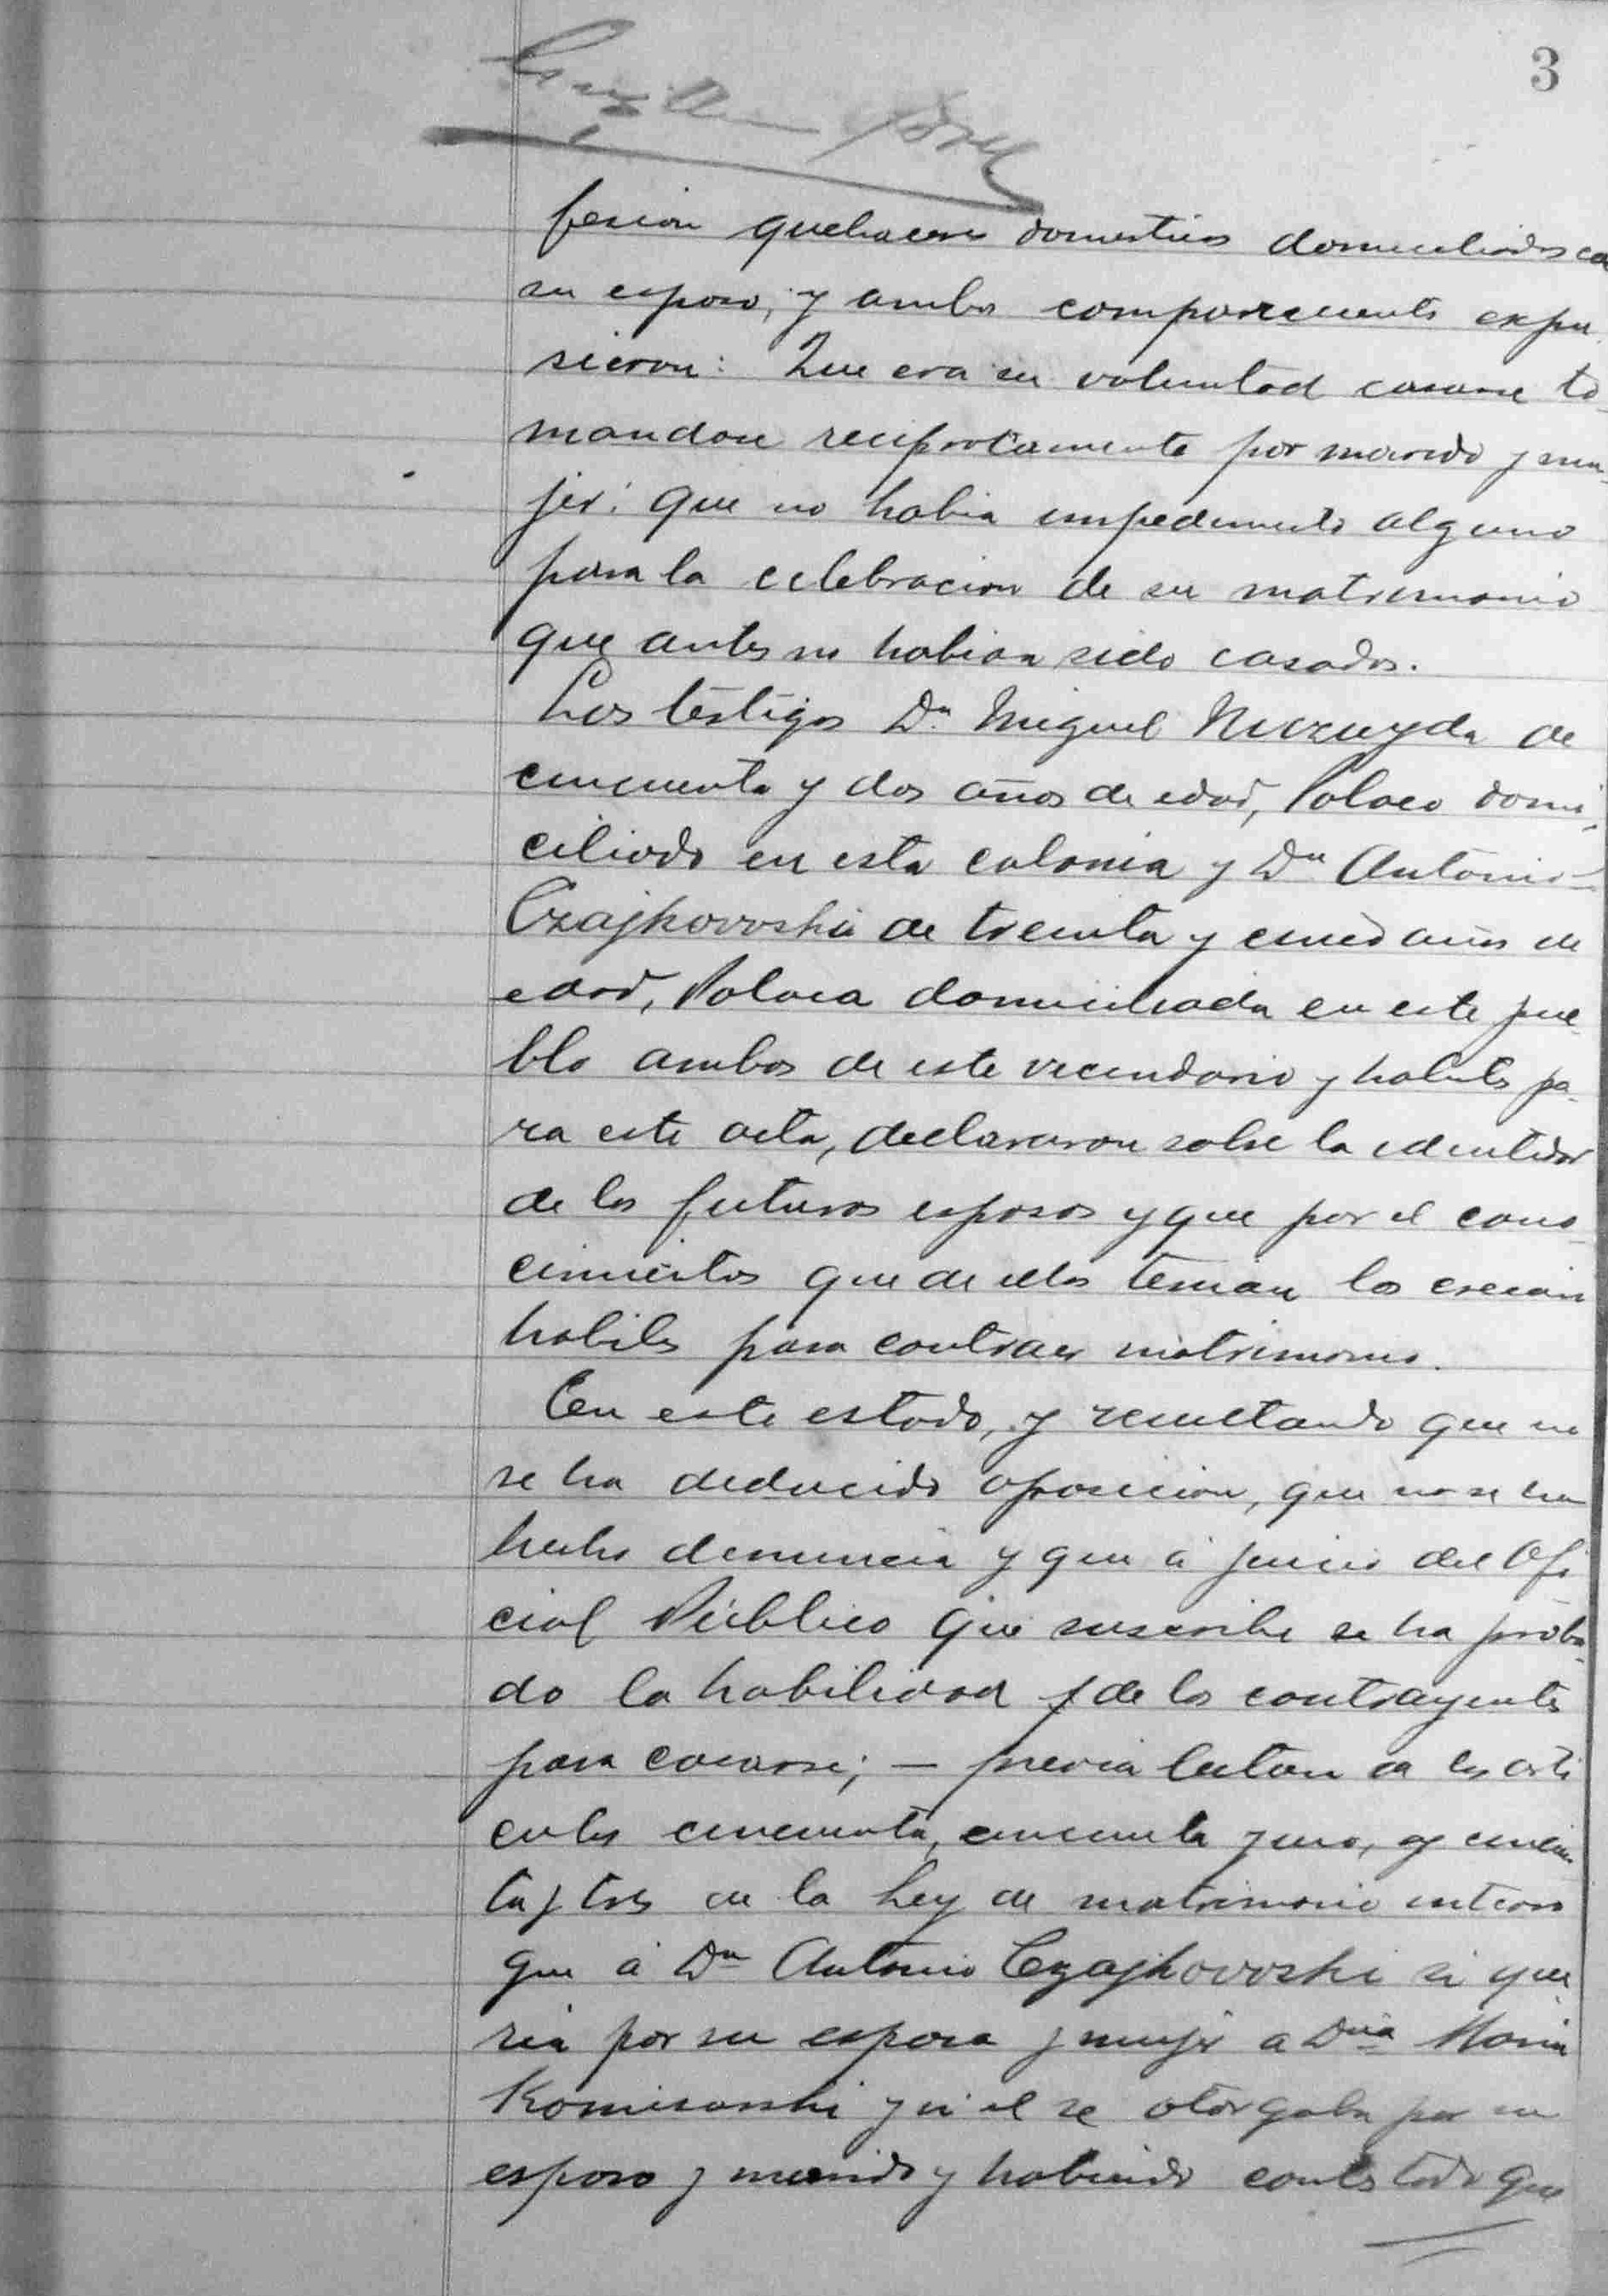 3
fesion quehaceres domesticos domiciliados con
su esposo, y ambos compareciente expu
sieron: Que era su voluntad casarse to
mandose reciprocamente por marido y mu
jer: que no habia impedimento alguno
para la celebracion de su matrimonio
que antes no habian sido casados.
Los testigos Dn Miguel de
cincuenta y dos años de edad, Polaco domi
ciliado en esta colonia y Dn Antonio
Czajkowoski de treinta y cinco años de
edad, Polaca domiciliada en este pue
blo ambos de este vecindario y habiles pa
ra este acta, declararon sobre la identidad
de los futuros esposos y que por el cono
cimientos que de ellos tenian los creian
habiles para contraer matrimonio.
En este estado, y resultando que no
se ha deducido oposicion, que no se ha
hecho denuncia y que á juicio del Ofi
cial Público que suscribe se ha proba
do la habilidad de los contrayentes
para casarse; — previa lectura de los arti
culos cincuenta, cincuenta y uno, y cincuen
ta y tres de la Ley de matrimonio interro
gue á Dn Antonio Czajkowoski si que
ria por su esposa y mujer a Dña Maria
Komisarski y si el se otorgaba por su
esposo y marido y habiendo contestado que